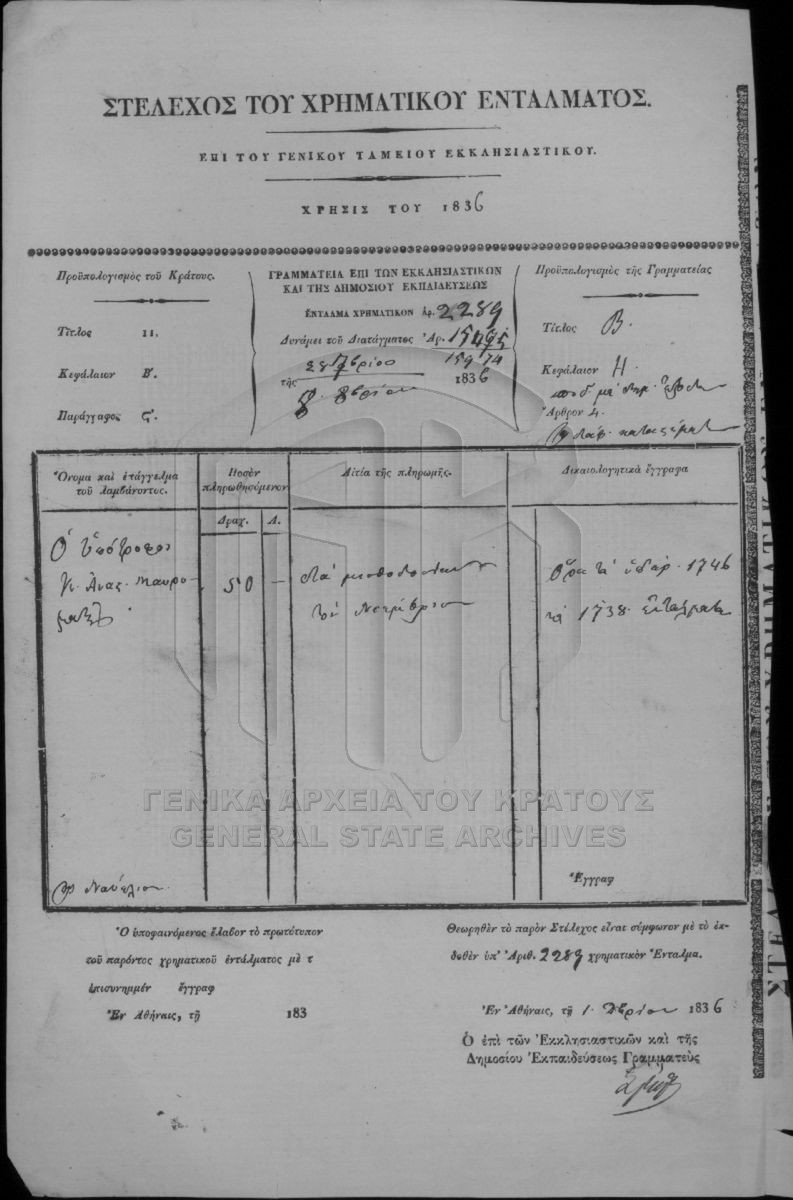 ΣΤΕΛΕΧΟΣ ΤΟΥ ΧΡΗΜΑΤΙΚΟΥ ΕΝΤΑΛΜΑΤΟΣ.
ΕΠΙ ΤΟΥ ΓΕΝΙΚΟΥ ΤΑΜΕΙΟΥ ΕΚΚΛΗΣΙΑΣΤΙΚΟΥ.
ΧΡΗΣΙΣ ΤΟΥ 1836
Προϋπολογισμὸς τοῦ Κράτους.
Τίτλος ΙΙ.
Κεφάλαιον Β'.
Παράγραφος ς'.
ΓΡΑΜΜΑΤΕΙΑ ΕΠΙ ΤΩΝ ΕΚΚΛΗΣΙΑΣΤΙΚΩΝ
ΚΑΙ ΤΗΣ ΔΗΜΟΣΙΟΥ ΕΚΠΑΙΔΕΥΣΕΩΣ
ΕΝΤΑΛΜΑ ΧΡΗΜΑΤΙΚΟΝ Ἀρ. 2289
Δυνάμει τοῦ Διατάγματος Ἀρ.
15974
τῆς 1836
Προϋπολογισμὸς τῆς Γραμματείας
Τίτλος Β.
Κεφάλαιον Η.
Ἄρθρον 4.
Ὄνομα καὶ ἐπάγγελμα
τοῦ λαμβάνοντος.
Ποσὸν
πληρωθησόμενον
Δραχ. Λ.
Αἰτία τῆς πληρωμῆς.
Δικαιολογητικὰ ἔγγραφα
Ὁ ὑπότροφος
Κ. Ἀνας. Μαυρο-
50 —
τοῦ Νοεμβρίου
Ὅρα τὰ ὑπ' ἀρ. 1746
1738 ἐντάλματα
Ναύπλιον.
Ἔγγραφ
Ὁ ὑποφαινόμενος ἔλαβον τὸ πρωτότυπον
τοῦ παρόντος χρηματικοῦ ἐντάλματος μὲ τ
ἐπισυνημμέν ἔγγραφ
Ἐν Ἀθήναις, τῇ 183
Θεωρηθὲν τὸ παρὸν Στέλεχος εἶναι σύμφωνον μὲ τὸ ἐκ-
δοθὲν ὑπ' Ἀριθ. 2289 χρηματικὸν Ἔνταλμα.
Ἐν Ἀθήναις, τῇ 1 Δβρίου 1836
Ὁ ἐπὶ τῶν Ἐκκλησιαστικῶν καὶ τῆς
Δημοσίου Ἐκπαιδεύσεως Γραμματεὺς
ΓΕΝΙΚΑ ΑΡΧΕΙΑ ΤΟΥ ΚΡΑΤΟΥΣ
GENERAL STATE ARCHIVES